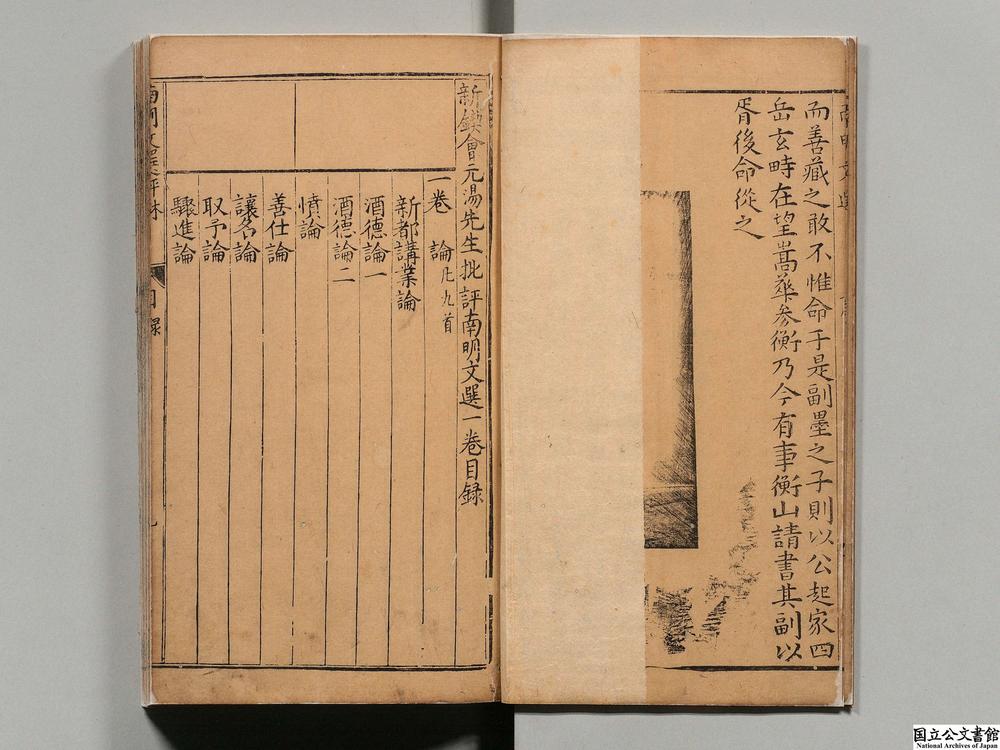 而善藏之敢不惟命于是副墨之子則以公起家四
岳玄畤在望嵩華參衡乃今有事衡山請書其副以
胥後命從之
新鍥會元湯先生批評南明文選一卷目録
一卷 論凡九首
新都講業論
酒德論一
酒德論二
憤論
善仕論
讓名論
取予論
驟進論
目録
国立公文書館
National Archives of Japan